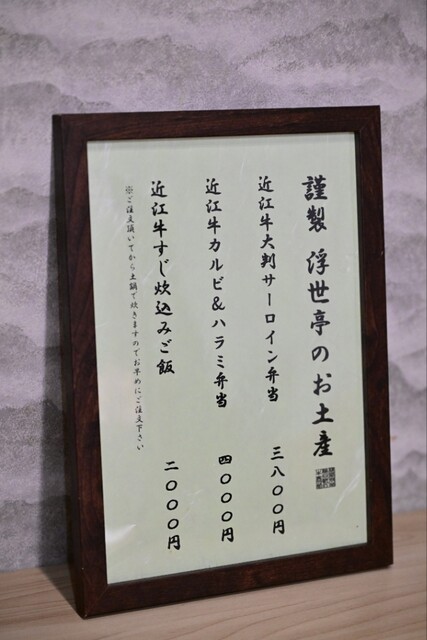 謹製 浮世亭のお土産
近江牛大判サーロイン弁当 三八〇〇円
近江牛カルビ&ハラミ弁当 四〇〇〇円
近江牛すじ炊込みご飯 二〇〇〇円
※ご注文頂いてから土鍋で炊きますのでお早めにご注文下さい